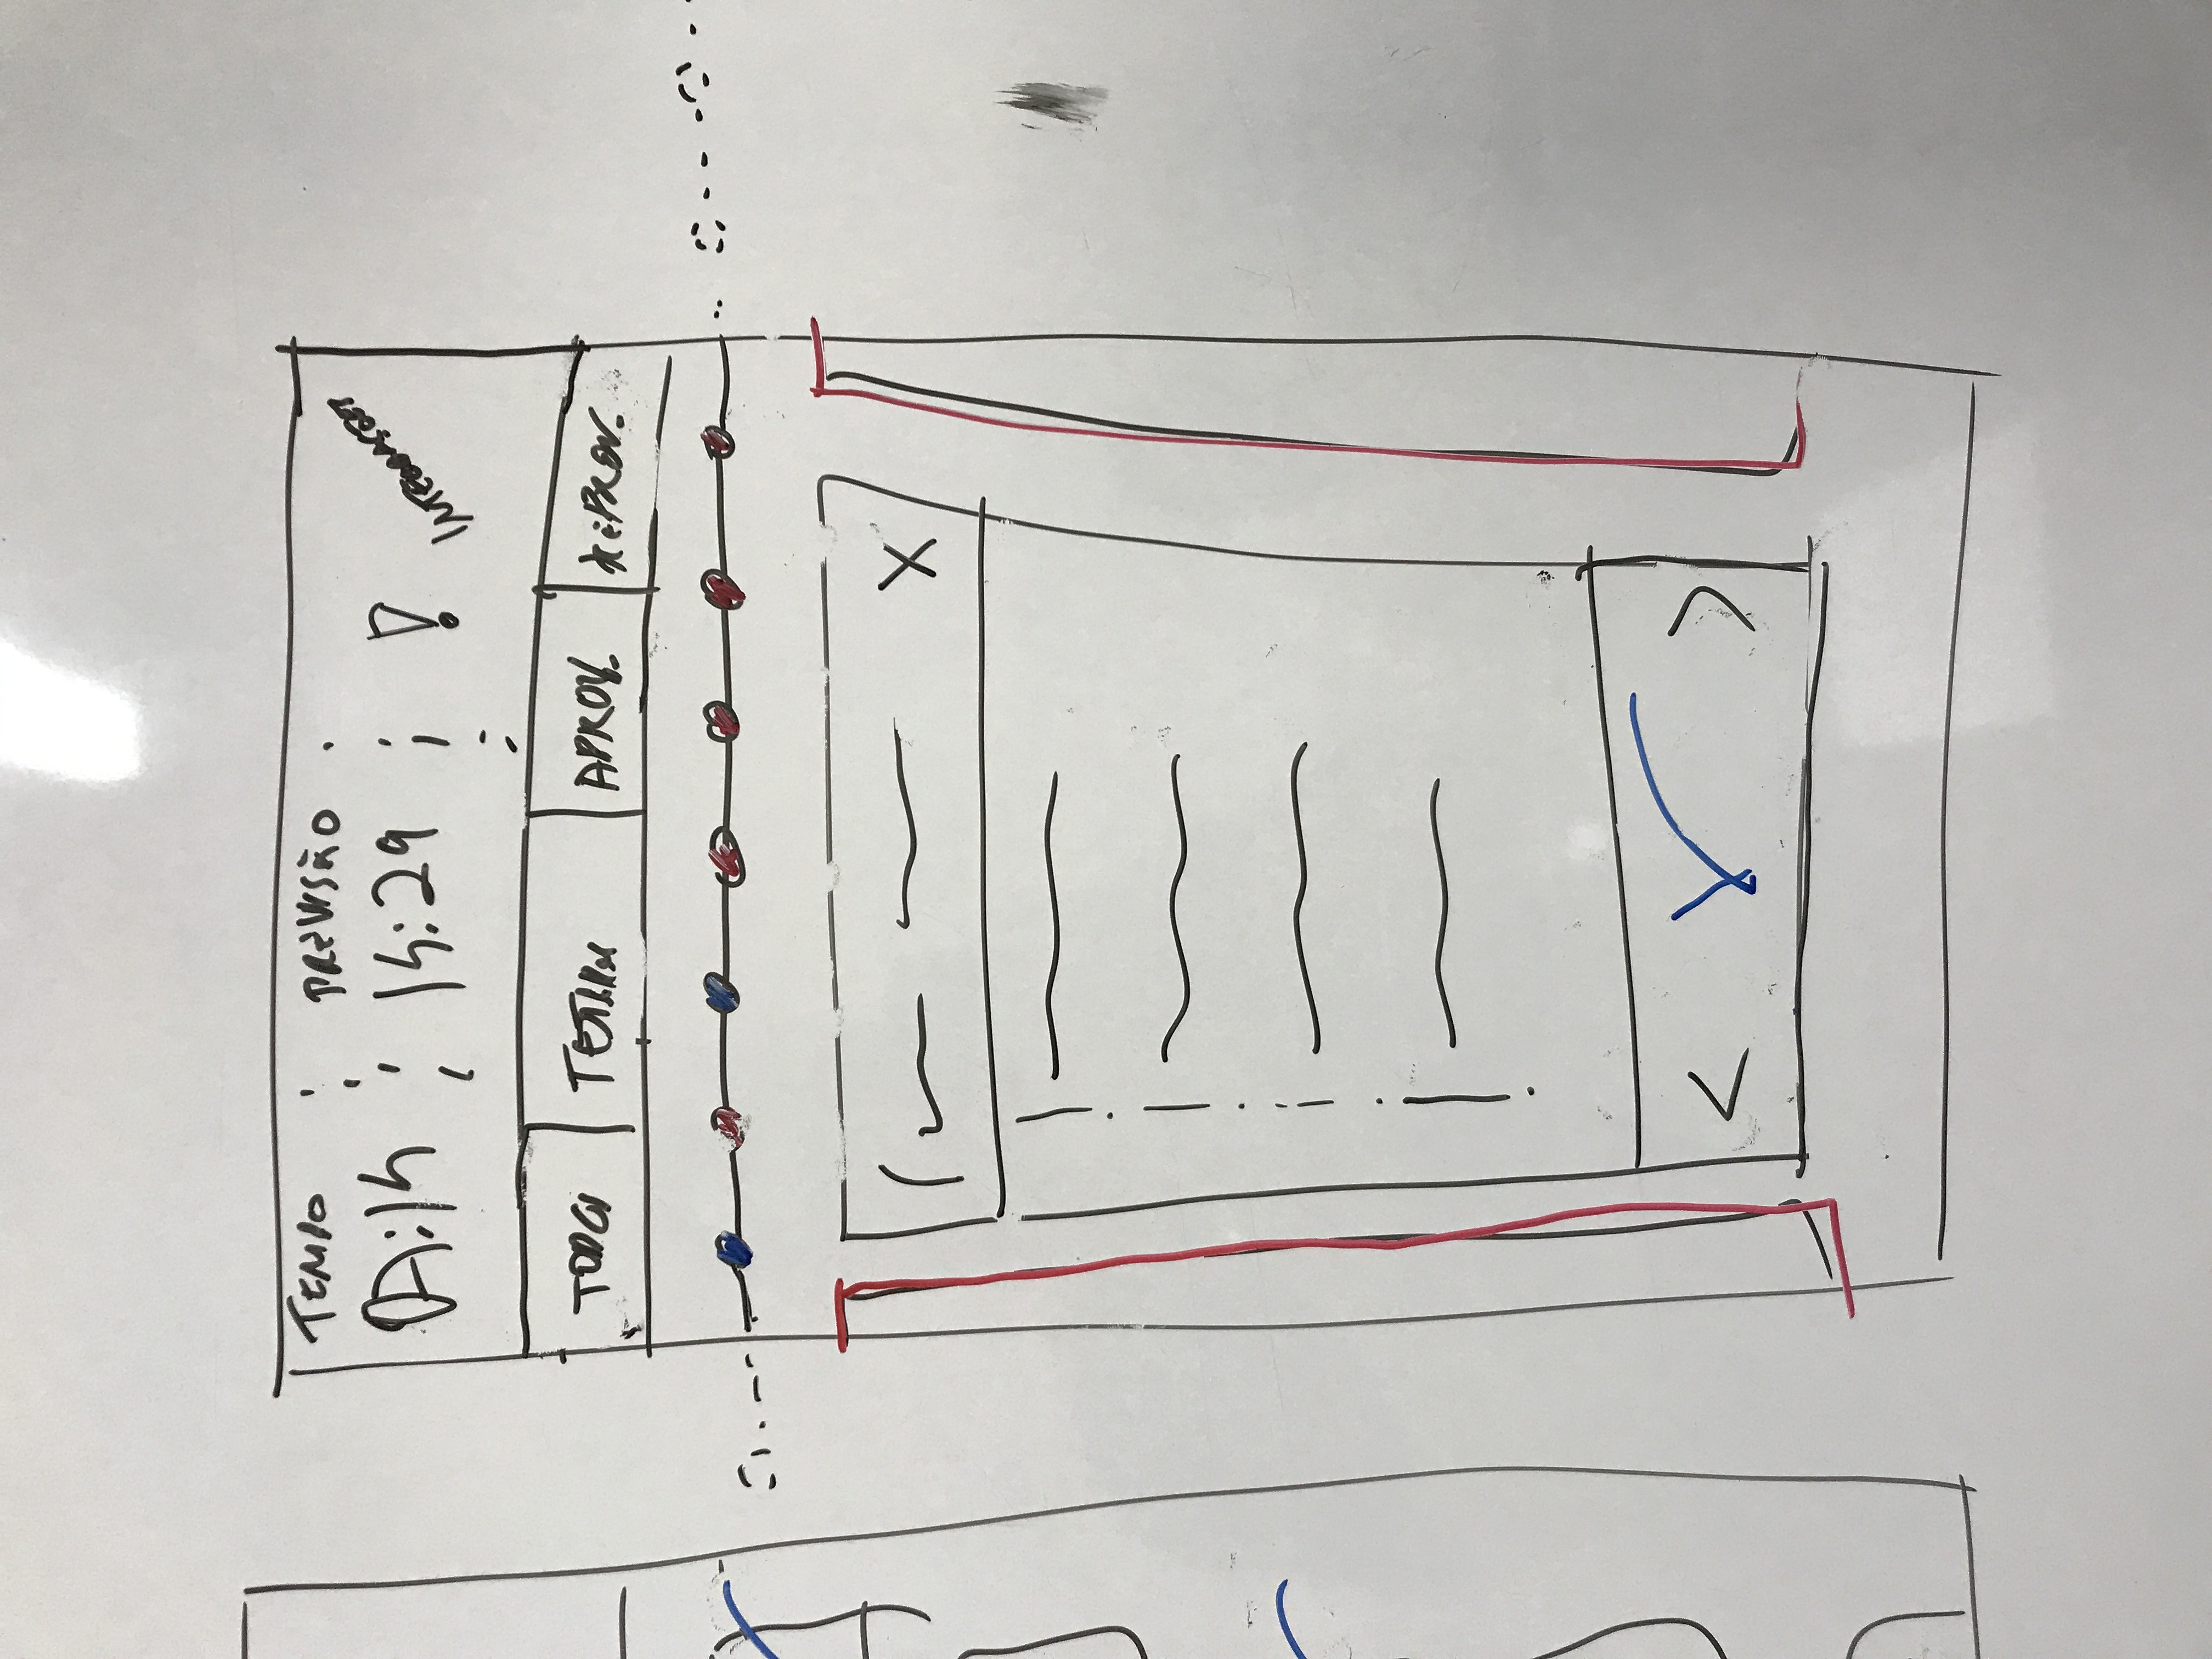 TEMPO
PREVISÃO
15:29
!
INTEGRAÇÕES
TODOS
APROV.
REPROV.
X
< >